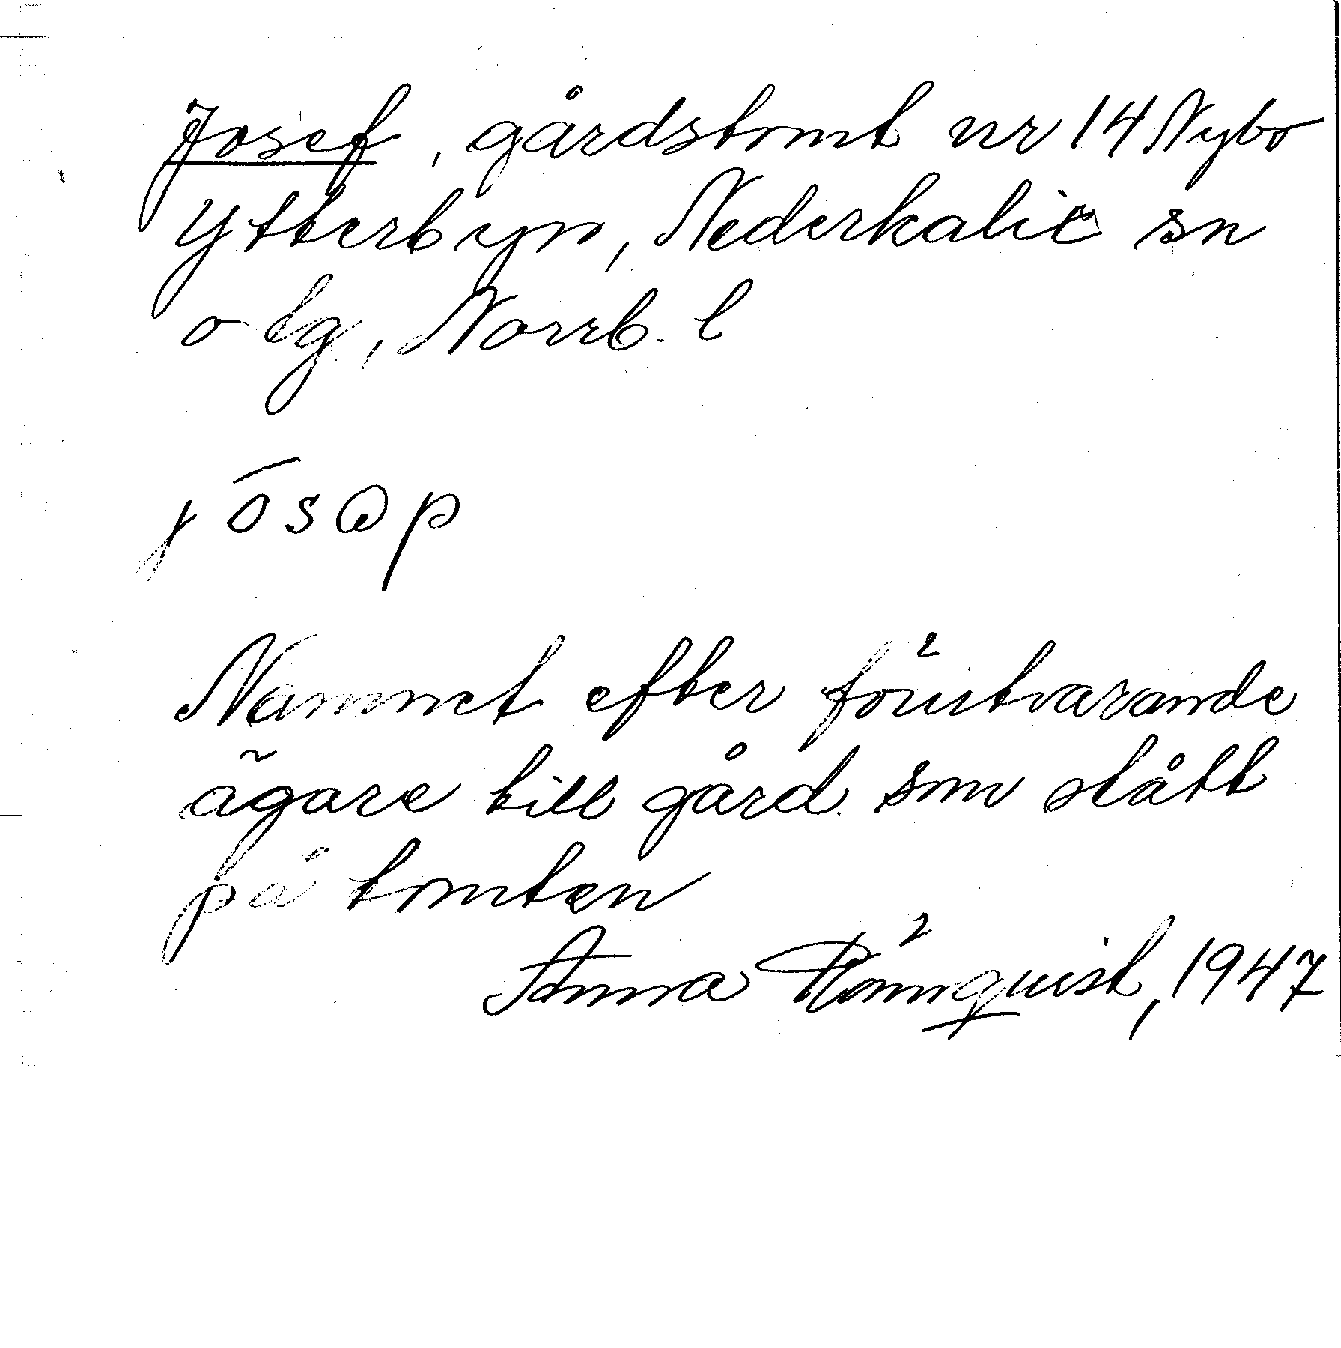 Josef, gårdstomt nr 14 Nybo
Ytterbyn, Nederkalix sn
o tg, Norrb. l
jōsap
Namnet efter förutvarande
ägare till gård som stått
på tomten
Anna Rönnquist, 1947